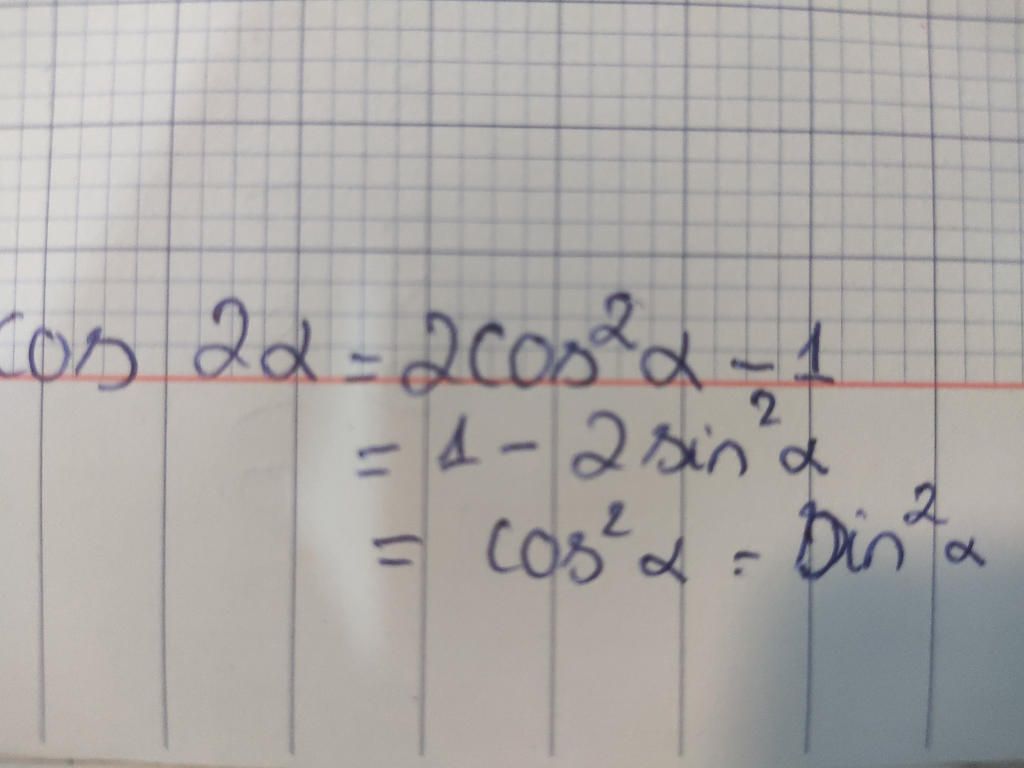 cos 2α = 2cos²α - 1
= 1 - 2 sin²α
= cos²α - sin²α